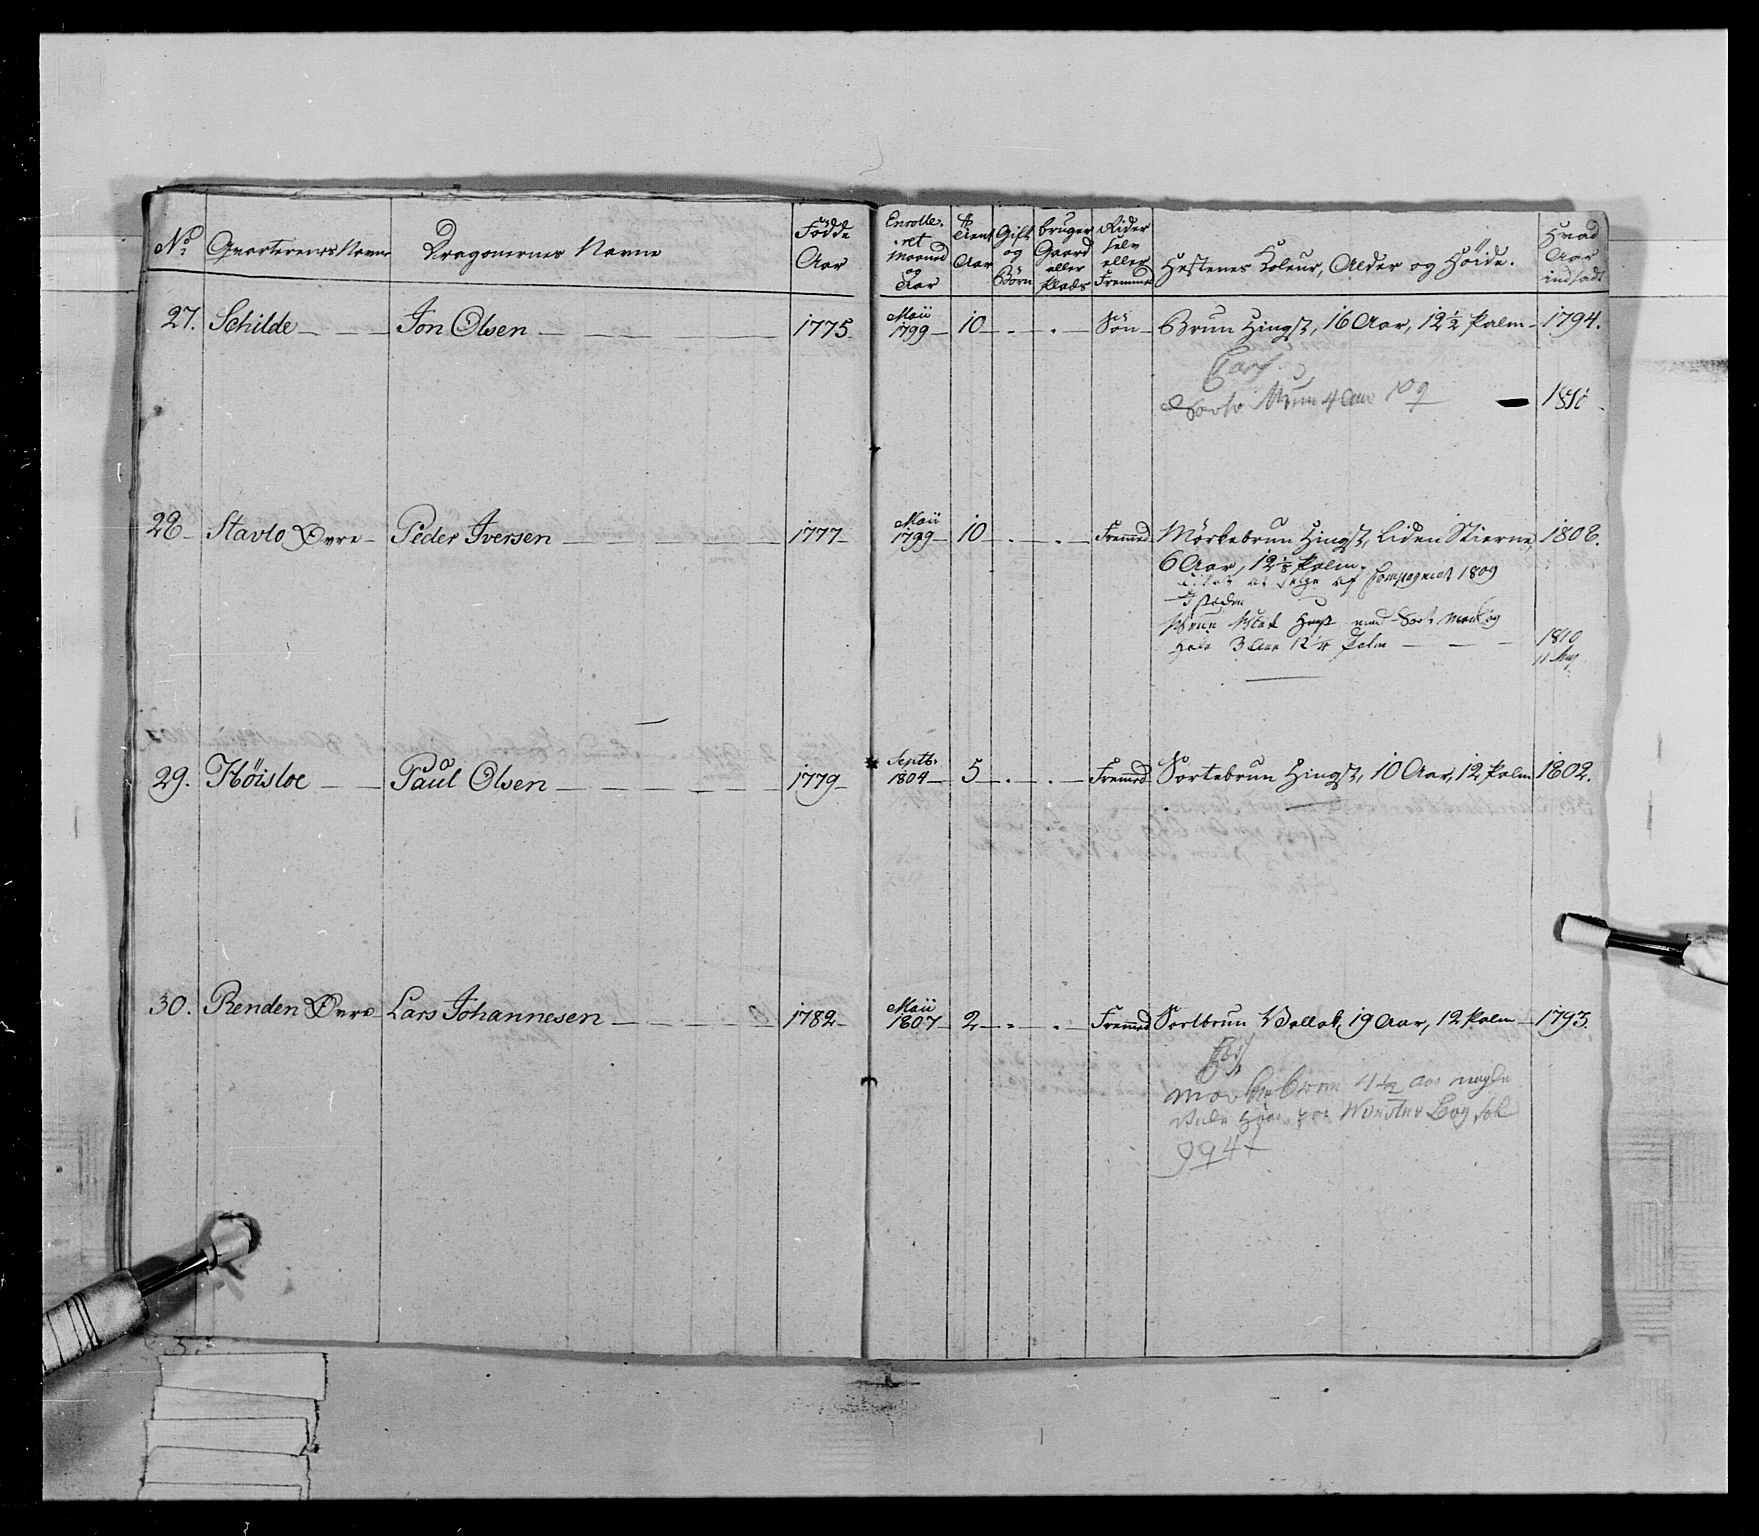 No. Qvarterernes Navne Dragonernes Navne Fødde Aar Enrolle-ret Maaned og Aar Tient Aar Gift og Børn bruger Gaard eller Plads Rider selv eller Fremmed Hestenes Koleur, Alder og Høide. Hvad Aar indsadt
27. Schilde Jon Olsen 1775 Maii 1799 10 Søn Brun Hingst, 16 Aar, 12 1/2 Palm 1794.
4 Aar
28 Stavlo Øvre Peder Iversen 1777 Maii 1799 10 Fremed Mörkebrun Hingst, liden Stierne, 1808.
6 Aar, 12 1/8 Palm.
af Compagniet 1809
3 Aar 12 1/4 Palm 1810
29. Høisloe Paul Olsen 1779 Septb. 1804 5 Fremed Sortebrun Hingst, 10 Aar, 12 Palm 1802.
30. Renden Øvre Lars Johannesen 1782 Maii 1807 2 Fremed Sortbrun Vallak, 19 Aar, 12 Palm 1793.
4 1/2 aar